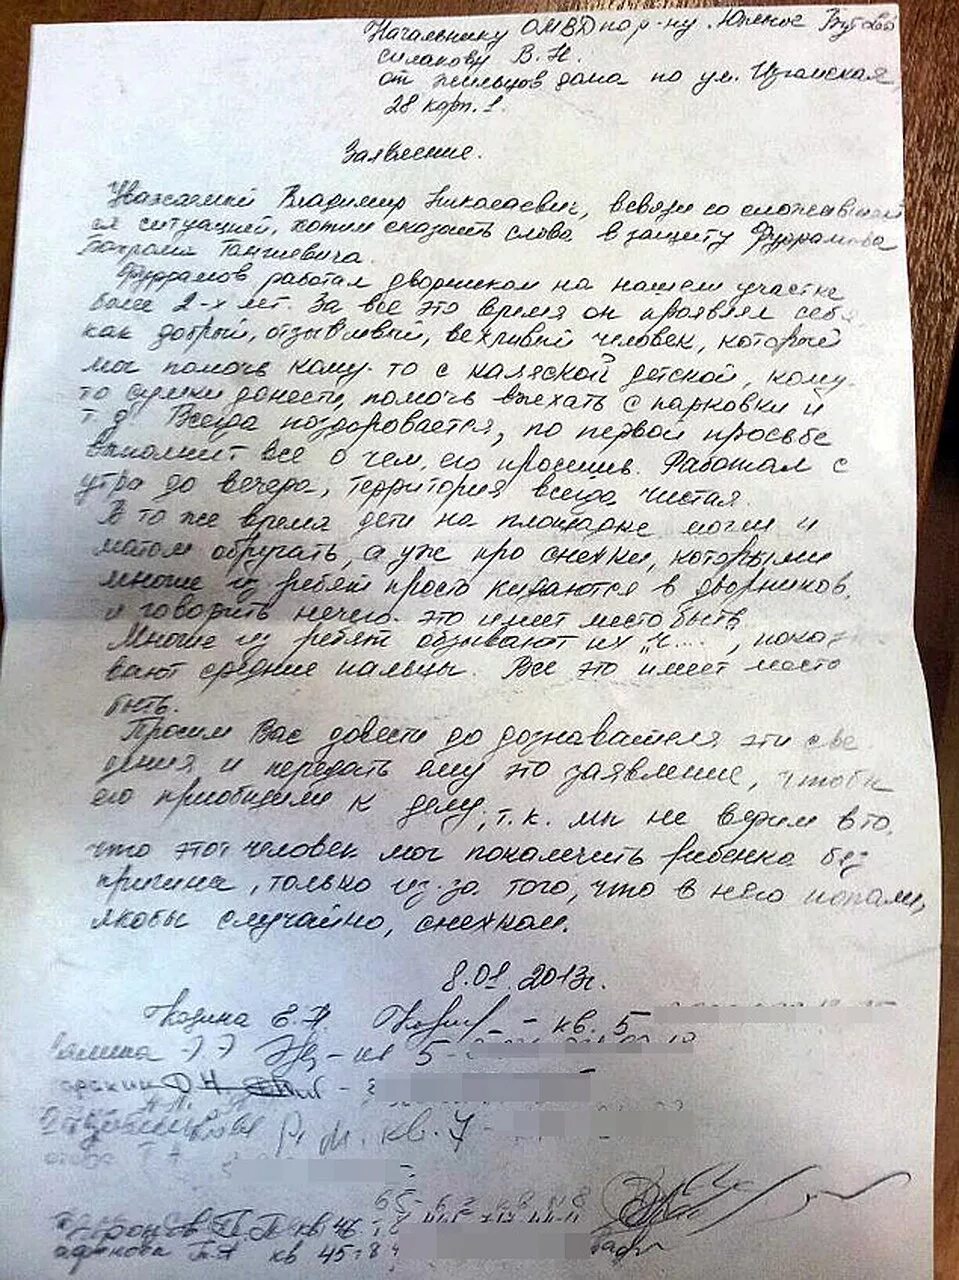 Начальнику ОМВД по р-ну Южное Бутово
Силакову В. Н.
от жильцов дома по ул. Изюмская,
28 корп. 1.
Заявление.
Уважаемый Владимир Николаевич, всвязи со сложившей
ся ситуацией, хотим сказать слова в защиту
Работал дворником на нашем участке
более 2-х лет. За все это время он проявлял себя
как добрый, отзывчивый, вежливый человек, который
мог помочь кому-то с коляской детской, кому-
то сумки донести, помочь выехать с парковки и
т. д. Всегда поздоровается, по первой просьбе
выполнит все о чем его просишь. Работал с
утра до вечера, территория всегда чистая.
В то же время дети на площадке могли и
матом обругать, а уж про снежки, которыми
многие из ребят просто кидаются в дворников,
и говорить нечего. это имеет место быть.
Многие из ребят обзывают их "ч....", показы
вают средние пальцы. Все это имеет место
быть.
Просим Вас довести до дознавателя эти све
дения и передать ему это заявление, чтобы
его приобщили к делу, т. к. мы не верим в то,
что этот человек мог покалечить ребенка без
причины, только из-за того, что в него попали,
якобы случайно, снежком.
8.01.2013г.
Козина Е. А. - кв. 5
- кв 5 -
кв. 7 -
кв 46
кв 45